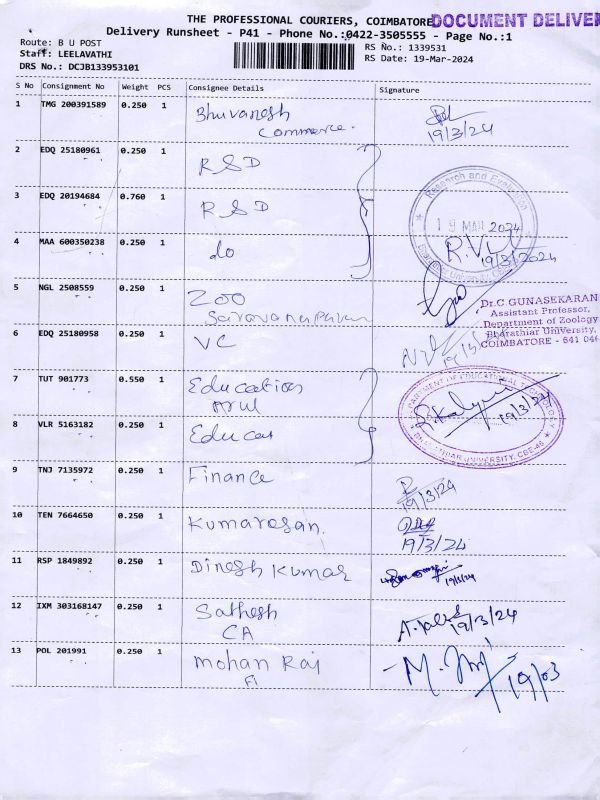 THE PROFESSIONAL COURIERS, COIMBATORE
DOCUMENT DELIVER
Delivery Runsheet - P41 - Phone No.:0422-3505555 - Page No.:1
Route: B U POST
Staff: LEELAVATHI
DRS No.: DCJB133953101
RS No.: 1339531
RS Date: 19-Mar-2024
S No Consignment No Weight PCS Consignee Details Signature
1 TMG 200391589 0.250 1 Bhuvanesh
Commerce.
19/3/24
2 EDQ 25180961 0.250 1 RSD
3 EDQ 20194684 0.760 1 RSD
Research and
19 MAR 2024
4 MAA 600350238 0.250 1 do
19/3/2024
5 NGL 2508559 0.250 1 Zoo
Dr.C GUNASEKARAN
Assistant Professor,
Department of Zoology
Bharathiar University,
COIMBATORE - 641 046
6 EDQ 25180958 0.250 1 VC
7 TUT 901773 0.550 1 Education
Arul
DEPARTMENT OF EDUCATIONAL TECHNOLOGY
BHARATHIAR UNIVERSITY, CBE-46
R. Kalyani
19/3/24
8 VLR 5163182 0.250 1 Educat
9 TNJ 7135972 0.250 1 Finance
19/3/24
10 TEN 7664650 0.250 1 Kumaresan.
19/3/24
11 RSP 1849892 0.250 1 Dinesh Kumar
19/3/24
12 IXM 303168147 0.250 1 Sathesh
CA
19/3/24
13 POL 201991 0.250 1 Mohan Raj
19/03